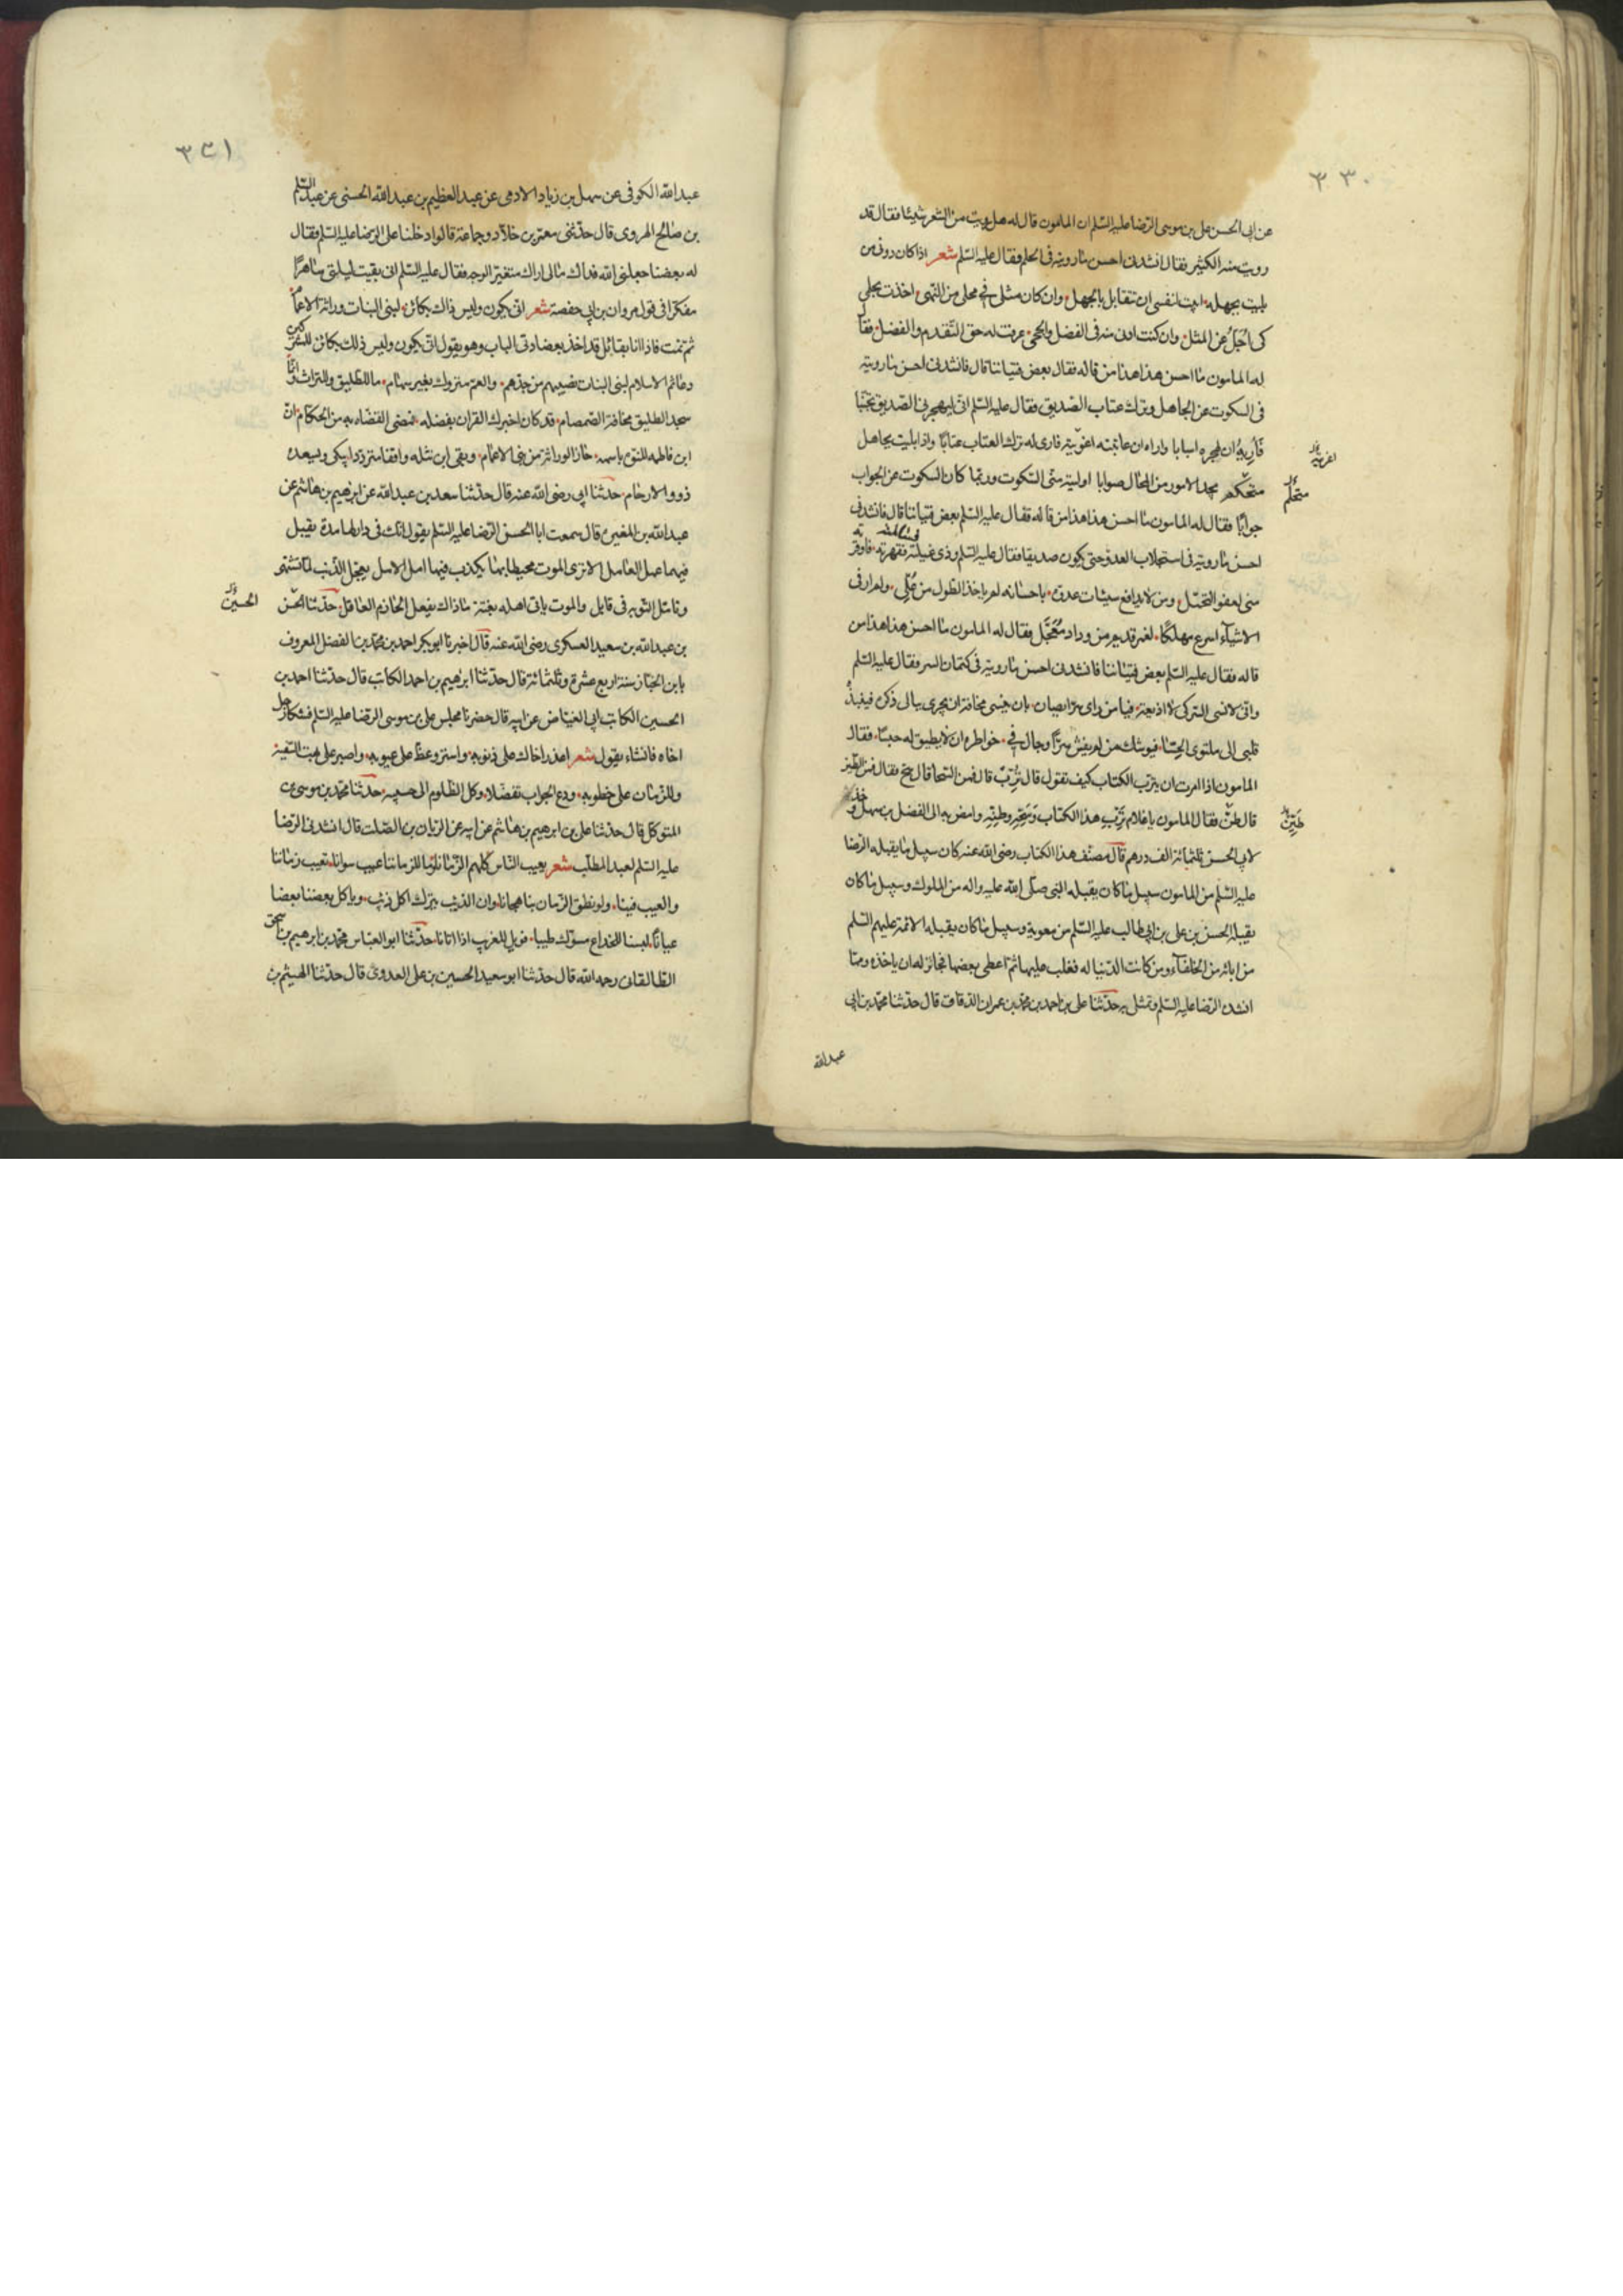 ٣٣٠
عن ابى الحسن على بن موسى الرضا عليه السلم ان المامون قال له هل رويت من الشعر شيئا فقال قد
رويت منه الكثير فقال انشدنى احسن ما رويته فى الحلم فقال عليه السلم شعر اذا كان دونى من
بليت بجهله ابيت لنفسى ان تقابل بالجهل وان كان مثلى فى محلى من النهى اخذت بحلمى
كى اجل عن المثل وان كنت ادنى منه فى الفضل والحجى عرفت له حق التقدم والفضل فقا
له المامون ما احسن هذا هذا من قاله فقال بعض فتياننا قال فانشدنى احسن ما رويته
فى السكوت عن الجاهل وترك عتاب الصديق فقال عليه السلم انى ليهجرنى الصديق تجنبا
فاريه ان لهجره اسبابا واراه ان عاتبته اغريته فارى له ترك العتاب عتابا واذا بليت بجاهل
متحكم يجد الامور من المحال صوابا اوليته منى السكوت وربما كان السكوت عن الجواب
جوابا فقال له المامون ما احسن هذا هذا من قاله فقال عليه السلم بعض فتياننا قال فانشدنى
احسن ما رويته فى استجلاب العدو حتى يكون صديقا فقال عليه السلم وذى غيلة فقهرته فاوقر
منى لعفو التجمل ومن لا يدافع سيئات عدوه باحسانه لم ياخذ الطول من عل ولم ار فى
الاشياء اسرع مهلكا لغمر قديم من وداد معجل فقال له المامون ما احسن هذا هذا من
قاله فقال عليه السلم بعض فتياننا فانشدنى احسن ما رويته فى كتمان السر فقال عليه السلم
وانى لانسى السر كى لا اذيعه فيا من راى سرا يصان بان ينسى مخافة ان يجرى ببالى ذكره فينبذ
قلبى الى ملتوى الحشا فيوشك من لم يفش سرا وجال فى خواطره ان لا يطيق له حبسا فقال
المامون اذا امرت ان يترب الكتاب كيف تقول قال ترب قال فمن السحا قال سح فقال فمن الطين
قال طين فقال المامون يا غلام ترب هذا الكتاب وسحه وطينه وامض به الى الفضل بن سهل وخذ
لابى الحسن ثلثمائة الف درهم قال مصنف هذا الكتاب رضى الله عنه كان سبيل ما يقبله الرضا
عليه السلم من المامون سبيل ما كان يقبله النبى صلى الله عليه واله من الملوك وسبيل ما كان
يقبله الحسن بن على بن ابى طالب عليه السلم من معوية وسبيل ما كان يقبله الائمة عليهم السلم
من ابائه من الخلفاء ومن كانت الدنيا له فغلب عليها ثم اعطى بعضها فجائز له ان ياخذه ومما
انشده الرضا عليه السلم وتمثل به حدثنا على بن احمد بن محمد بن عمران الدقاق قال حدثنا محمد بن ابى
عبد الله
اغريته
متحلم
طين
٣٣١
عبد الله الكوفى عن سهل بن زياد الادمى عن عبد العظيم بن عبد الله الحسنى عن عبد السلم
بن صالح الهروى قال حدثنى معمر بن خلاد وجماعة قالوا دخلنا على الرضا عليه السلم فقال
له بعضنا جعلنى الله فداك مالى اراك متغير الوجه فقال عليه السلم انى بقيت ليلتى ساهرا
مفكرا فى قول مروان بن ابى حفصة شعر انى يكون وليس ذاك بكائن لبنى البنات وراثة الاعمام
ثم نمت فاذا انا بقائل قد اخذ بعضادتى الباب وهو يقول انى يكون وليس ذلك بكائن للمشركين
دعائم الاسلام لبنى البنات نصيبهم من جدهم والعم متروك بغير سهام ما للطليق وللتراث وانما
سجد الطليق مخافة الصمصام قد كان اخبرك القران بفضله فمضى القضاء به من الحكام ان
ابن فاطمه المنوه باسمه حاز الوراثة من بنى الاعمام وبقى ابن نثله واقفا مترددا يبكى ويسعده
ذوو الارحام حدثنا ابى رضى الله عنه قال حدثنا سعد بن عبد الله عن ابرهيم بن هاشم عن
عبد الله بن المغيرة قال سمعت ابا الحسن الرضا عليه السلم يقول انك فى دار لها مدة يقبل
فيها عمل العامل الا ترى الموت محيطا بها يكذب فيها امل الامل يعجل الذنب لما تشتهى
وتامل التوبه فى قابل والموت ياتى اهله بغتة ما ذاك يفعل الحازم العاقل حدثنا الحسن
بن عبد الله بن سعيد العسكرى رضى الله عنه قال اخبرنا ابو بكر احمد بن محمد بن الفضل المعروف
بابن الخباز سنة اربع عشرة وثلثمائة قال حدثنا ابرهيم بن احمد الكاتب قال حدثنا احمد بن
الحسين الكاتب ابى الفياض عن ابيه قال حضرنا مجلس على بن موسى الرضا عليه السلم فشكا رجل
اخاه فانشاء يقول شعر اعذر اخاك على ذنوبه واستر وغط على عيوبه واصبر على بهت السفيه
وللزمان على خطوبه ودع الجواب تفضلا وكل الظلوم الى حسيبه حدثنا محمد بن موسى بن
المتوكل قال حدثنا على بن ابرهيم بن هاشم عن ابيه عن الريان بن الصلت قال انشدنى الرضا
عليه السلم لعبد المطلب شعر يعيب الناس كلهم الزمانا وما لزماننا عيب سوانا نعيب زماننا
والعيب فينا ولو نطق الزمان بنا هجانا وان الذئب يترك اكل ذئب وياكل بعضنا بعضا
عيانا لبسنا للخداع مسوك طيب فويل للغريب اذا اتانا حدثنا ابو العباس محمد بن ابرهيم بن اسحق
الطالقانى رحمه الله قال حدثنا ابو سعيد الحسين بن على العدوى قال حدثنا الهيثم بن
الحسين